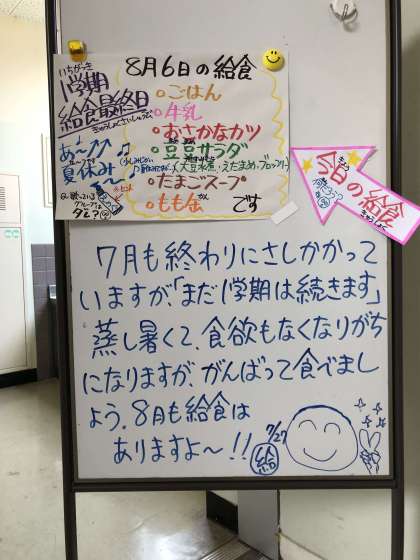 いちがっき
1学期
給食最終日
きゅうしょくさいしゅうび
あ〜↗↗
夏休み♪
8月6日の給食
○ごはん
○牛乳
○おさかなカツ
○豆豆サラダ
○たまごスープ
○もも缶 です
今日の給食
きゅうしょく
7月も終わりにさしかかって
いますが、「まだ1学期は続きます」
蒸し暑くて、食欲もなくなりがち
になりますが、がんばって食べまし
ょう。8月も給食は
ありますよ〜!!
7/27
給